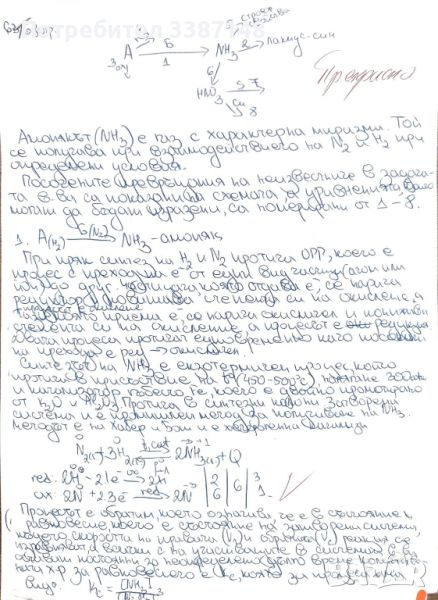 Потребител 3387748
А Б NH₃ лакмус-син
3 оц 1
HNO₃ 5 7
Cu 8
Прекрасно
Амонякът (NH₃) е газ с характерна миризма. Той
се получава при взаимодействието на N₂ и H₂ при
определени условия.
Посочените превръщания на неизвестните в задача-
та в-ва са показани на схемата, а уравненията,
могащи да бъдат изразени, са номерирани от 1-8.
1. A(H₂) Б(N₂) NH₃-амоняк
При пряк синтез на H₂ и N₂ протича ОРР, което е
процес с преходи на е⁻ от един вид частици (атом или
йон) до друг. Частицата която отдава е⁻, се нарича
редуктор и повишава степента си на окисление, а
приема е⁻, се нарича окислител и понижава
степента си на окисление, а процесът е редукция
Двата процеса протичат едновременно като посоката
на прехода е ред → окислител.
Синтезът на NH₃ е екзотермичен процес, който
протича в присъствие на t° (450-500°C), налягане 300 atm
и катализатор порьозно Fe, което е двойно промотирано
от K₂O и Al₂O₃. Протича в синтезни колони - затворени
системи и е промишлен метод за получаване на NH₃.
Методът е на Хабер и Бош и е
N₂(г) + 3H₂(г) t, cat 2NH₃(г) + Q
red: 2H⁰ - 2.1e⁻ → 2H⁺¹ 2 6 3
ox: 2N⁰ + 2.3e⁻ red 2N⁻³ 6 1
Процесът е обратим, което означава, че е в състояние на
равновесие, което е състояние на затворени системи
при което скоростта на правата (V₁) и обратната (V₂) реакция се
изравняват, а всички с-ни участващите в системата в-ва
остават постоянни за неопределено дълго време
на равновесието е Kc, която за
вида: Kc = [NH₃]²
[N₂][H₂]³